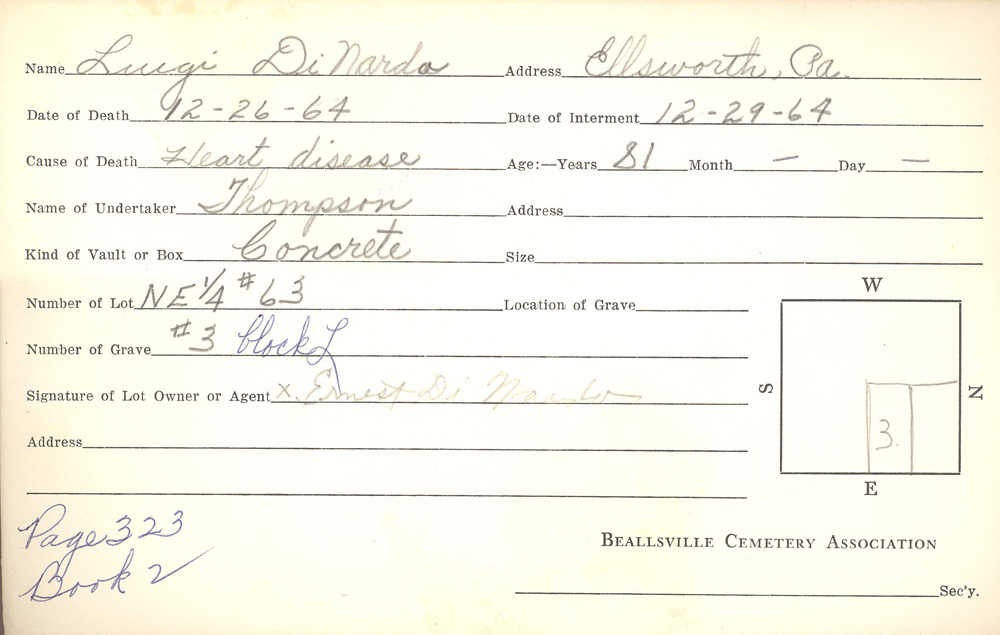 Name Luigi Di Nardo Address Ellsworth, Pa.
Date of Death 12-26-64 Date of Interment 12-29-64
Cause of Death Heart disease Age:—Years 81 Month — Day —
Name of Undertaker Thompson Address
Kind of Vault or Box Concrete Size
Number of Lot NE 1/4 #63 Location of Grave
Number of Grave #3 block L
Signature of Lot Owner or Agent x. Ernest Di Nardo
Address
W
S
N
3.
E
Page 323
Book 2
Beallsville Cemetery Association
Sec'y.